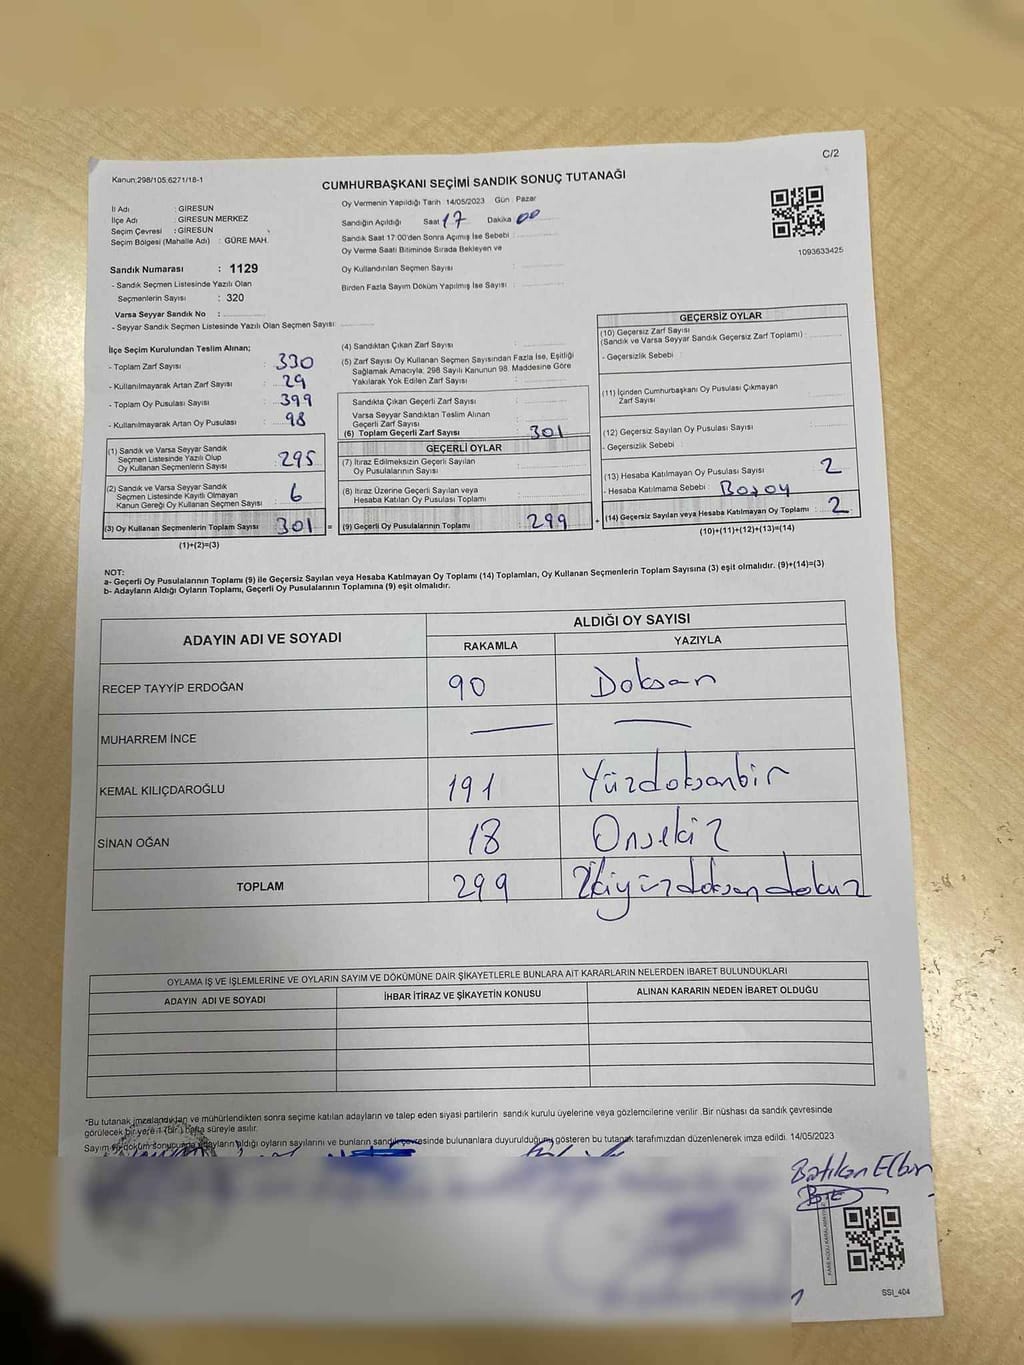 C/2
Kanun:298/105,6271/18-1
CUMHURBAŞKANI SEÇİMİ SANDIK SONUÇ TUTANAĞI
İl Adı : GİRESUN
İlçe Adı : GİRESUN MERKEZ
Seçim Çevresi : GİRESUN
Seçim Bölgesi (Mahalle Adı) : GÜRE MAH.
Sandık Numarası : 1129
- Sandık Seçmen Listesinde Yazılı Olan
Seçmenlerin Sayısı : 320
Varsa Seyyar Sandık No :
- Seyyar Sandık Seçmen Listesinde Yazılı Olan Seçmen Sayısı:
Oy Vermenin Yapıldığı Tarih :14/05/2023 Gün : Pazar
Sandığın Açıldığı Saat 17 Dakika 00
Sandık Saat 17:00'den Sonra Açımış İse Sebebi :
Oy Verme Saati Bitiminde Sırada Bekleyen ve
Oy Kullandırılan Seçmen Sayısı :
Birden Fazla Sayım Döküm Yapılmış İse Sayısı :
1093633425
İlçe Seçim Kurulundan Teslim Alınan;
- Toplam Zarf Sayısı : 330
- Kullanılmayarak Artan Zarf Sayısı : 29
- Toplam Oy Pusulası Sayısı : 399
- Kullanılmayarak Artan Oy Pusulası : 98
(1) Sandık ve Varsa Seyyar Sandık
Seçmen Listesinde Yazılı Olup
Oy Kullanan Seçmenlerin Sayısı : 295
(2) Sandık ve Varsa Seyyar Sandık
Seçmen Listesinde Kayıtlı Olmayan
Kanun Gereği Oy Kullanan Seçmen Sayısı : 6
(3) Oy Kullanan Seçmenlerin Toplam Sayısı : 301 =
(1)+(2)=(3)
(4) Sandıktan Çıkan Zarf Sayısı :
(5) Zarf Sayısı Oy Kullanan Seçmen Sayısından Fazla İse, Eşitliği
Sağlamak Amacıyla; 298 Sayılı Kanunun 98. Maddesine Göre
Yakılarak Yok Edilen Zarf Sayısı :
Sandıkta Çıkan Geçerli Zarf Sayısı :
Varsa Seyyar Sandıktan Teslim Alınan
Geçerli Zarf Sayısı :
(6) Toplam Geçerli Zarf Sayısı : 301
GEÇERLİ OYLAR
(7) İtiraz Edilmeksizin Geçerli Sayılan
Oy Pusulalarının Sayısı :
(8) İtiraz Üzerine Geçerli Sayılan veya
Hesaba Katılan Oy Pusulası Toplamı :
(9) Geçerli Oy Pusulalarının Toplamı : 299 +
GEÇERSİZ OYLAR
(10) Geçersiz Zarf Sayısı
(Sandık ve Varsa Seyyar Sandık Geçersiz Zarf Toplamı) :
- Geçersizlik Sebebi :
(11) İçinden Cumhurbaşkanı Oy Pusulası Çıkmayan
Zarf Sayısı :
(12) Geçersiz Sayılan Oy Pusulası Sayısı :
- Geçersizlik Sebebi :
(13) Hesaba Katılmayan Oy Pusulası Sayısı : 2
- Hesaba Katılmama Sebebi :
(14) Geçersiz Sayılan veya Hesaba Katılmayan Oy Toplamı : 2
(10)+(11)+(12)+(13)=(14)
NOT:
a- Geçerli Oy Pusulalarının Toplamı (9) ile Geçersiz Sayılan veya Hesaba Katılmayan Oy Toplamı (14) Toplamları, Oy Kullanan Seçmenlerin Toplam Sayısına (3) eşit olmalıdır. (9)+(14)=(3)
b- Adayların Aldığı Oyların Toplamı, Geçerli Oy Pusulalarının Toplamına (9) eşit olmalıdır.
ADAYIN ADI VE SOYADI
ALDIĞI OY SAYISI
RAKAMLA YAZIYLA
RECEP TAYYİP ERDOĞAN 90 Doksan
MUHARREM İNCE — —
KEMAL KILIÇDAROĞLU 191 Yüzdoksanbir
SİNAN OĞAN 18 Onsekiz
TOPLAM 299 İkiyüzdoksandokuz
OYLAMA İŞ VE İŞLEMLERİNE VE OYLARIN SAYIM VE DÖKÜMÜNE DAİR ŞİKAYETLERLE BUNLARA AİT KARARLARIN NELERDEN İBARET BULUNDUKLARI
ADAYIN ADI VE SOYADI İHBAR İTİRAZ VE ŞİKAYETİN KONUSU ALINAN KARARIN NEDEN İBARET OLDUĞU
"Bu tutanak imzalandıktan ve mühürlendikten sonra seçime katılan adayların ve talep eden siyasi partilerin sandık kurulu üyelerine veya gözlemcilerine verilir. Bir nüshası da sandık çevresinde
görülecek bir yere 1 (Bir) hafta süreyle asılır.
Sayım ve döküm sonucunda adayların aldığı oyların sayılarını ve bunların sandık çevresinde bulunanlara duyurulduğunu gösteren bu tutanak tarafımızdan düzenlenerek imza edildi. 14/05/2023
SSI_404